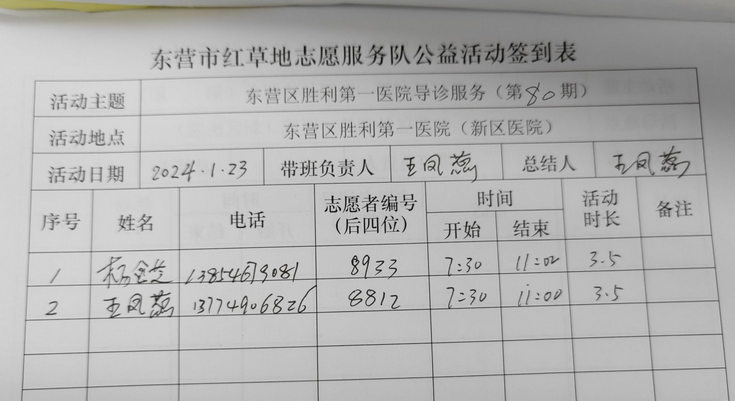 东营市红草地志愿服务队公益活动签到表
活动主题 东营区胜利第一医院导诊服务（第80期）
活动地点 东营区胜利第一医院（新区医院）
活动日期 2024.1.23 带班负责人 王凤蕊 总结人 王凤蕊
序号 姓名 电话 志愿者编号（后四位） 时间 开始 结束 活动时长 备注
1 杨 8933 7:30 11:00 3.5
2 王凤蕊 13774906826 8812 7:30 11:00 3.5